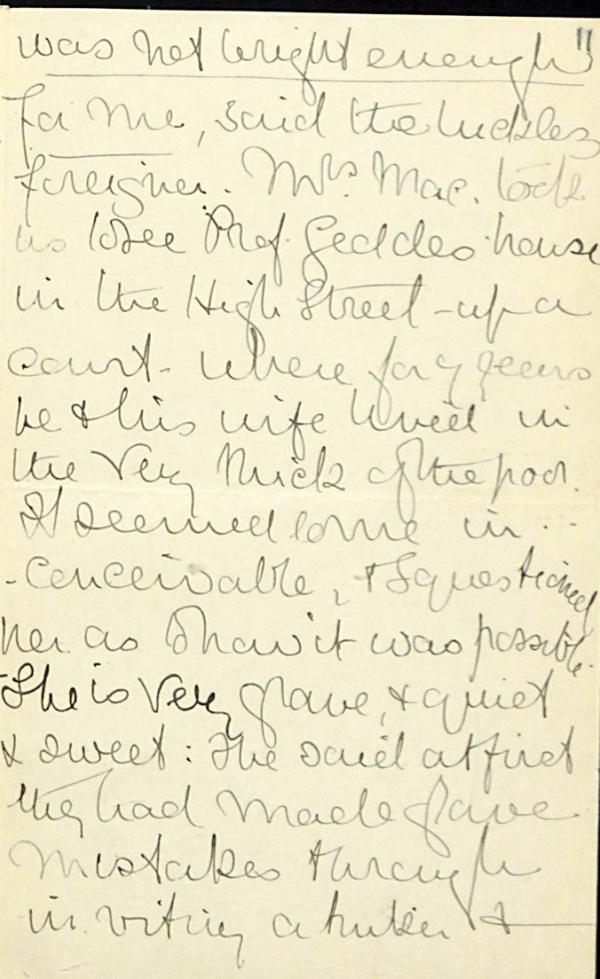 was not bright enough"
for me, said the luckless
foreigner. Mrs. Mac. took
us to see Prof. Geddes house
in the High Street - up a
court - where for 7 years
he & his wife lived in
the very thick of the poor.
It seemed to me in-
-conceivable, & I questioned
her as to how it was possible.
She is very grave, & quiet
& sweet: She said at first
they had made grave
mistakes through
inviting a tinker &